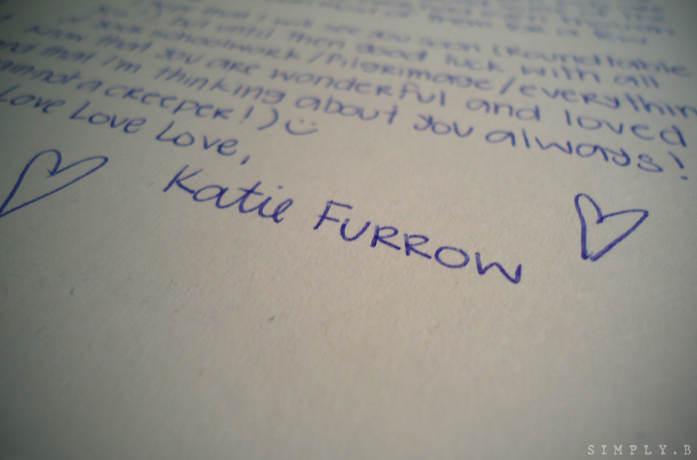 that I will see you soon (Roundtable
but until then good luck with all
your schoolwork/pilgrimage/everythin
know that you are wonderful and loved
and that i'm thinking about you always!
not a creeper!) :)
Love Love Love,
Katie Furrow
SIMPLY.B